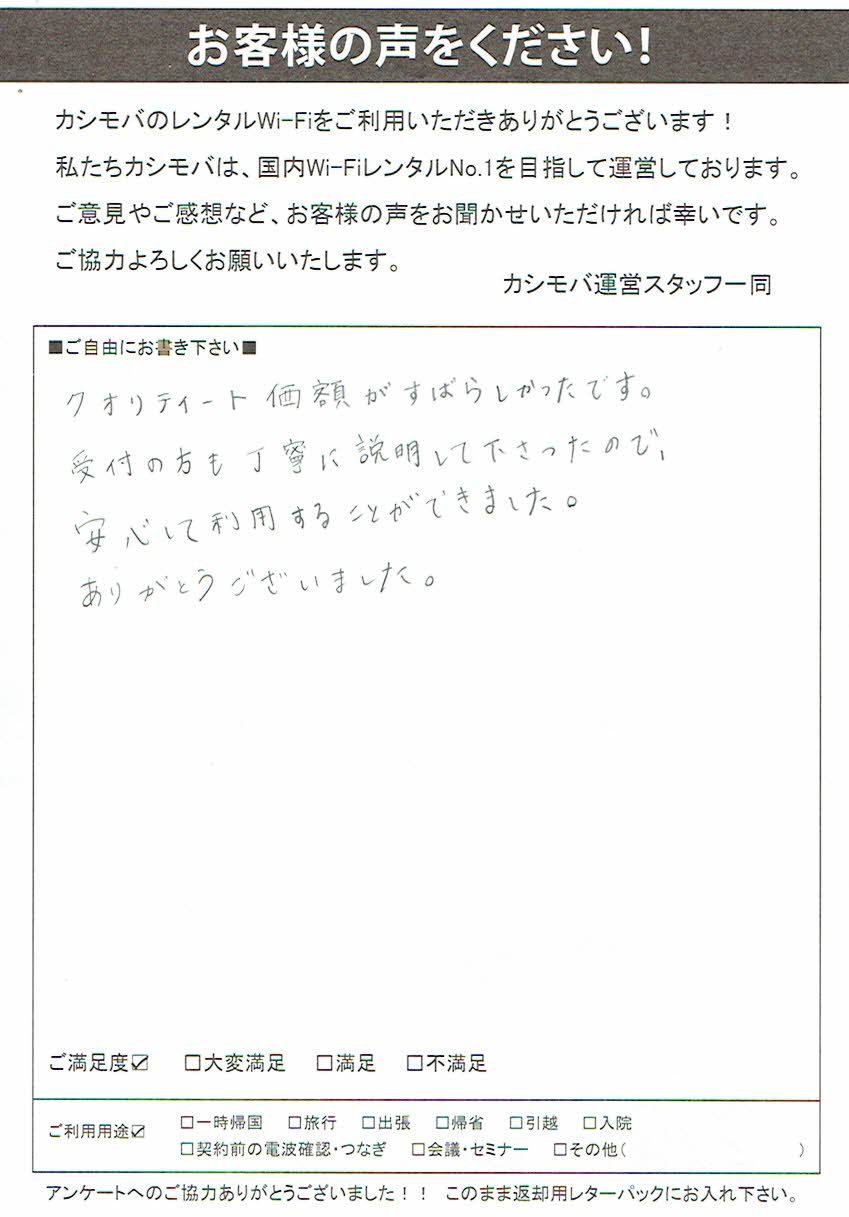 お客様の声をください!
カシモバのレンタルWi-Fiをご利用いただきありがとうございます!
私たちカシモバは、国内Wi-FiレンタルNo.1を目指して運営しております。
ご意見やご感想など、お客様の声をお聞かせいただければ幸いです。
ご協力よろしくお願いいたします。
カシモバ運営スタッフ一同
■ご自由にお書き下さい■
クオリティート価額がすばらしかったです。
受付の方も丁寧に説明して下さったので、
安心して利用することができました。
ありがとうございました。
ご満足度☑ □大変満足 □満足 □不満足
ご利用用途☑ □一時帰国 □旅行 □出張 □帰省 □引越 □入院
□契約前の電波確認・つなぎ □会議・セミナー □その他( )
アンケートへのご協力ありがとうございました!! このまま返却用レターパックにお入れ下さい。